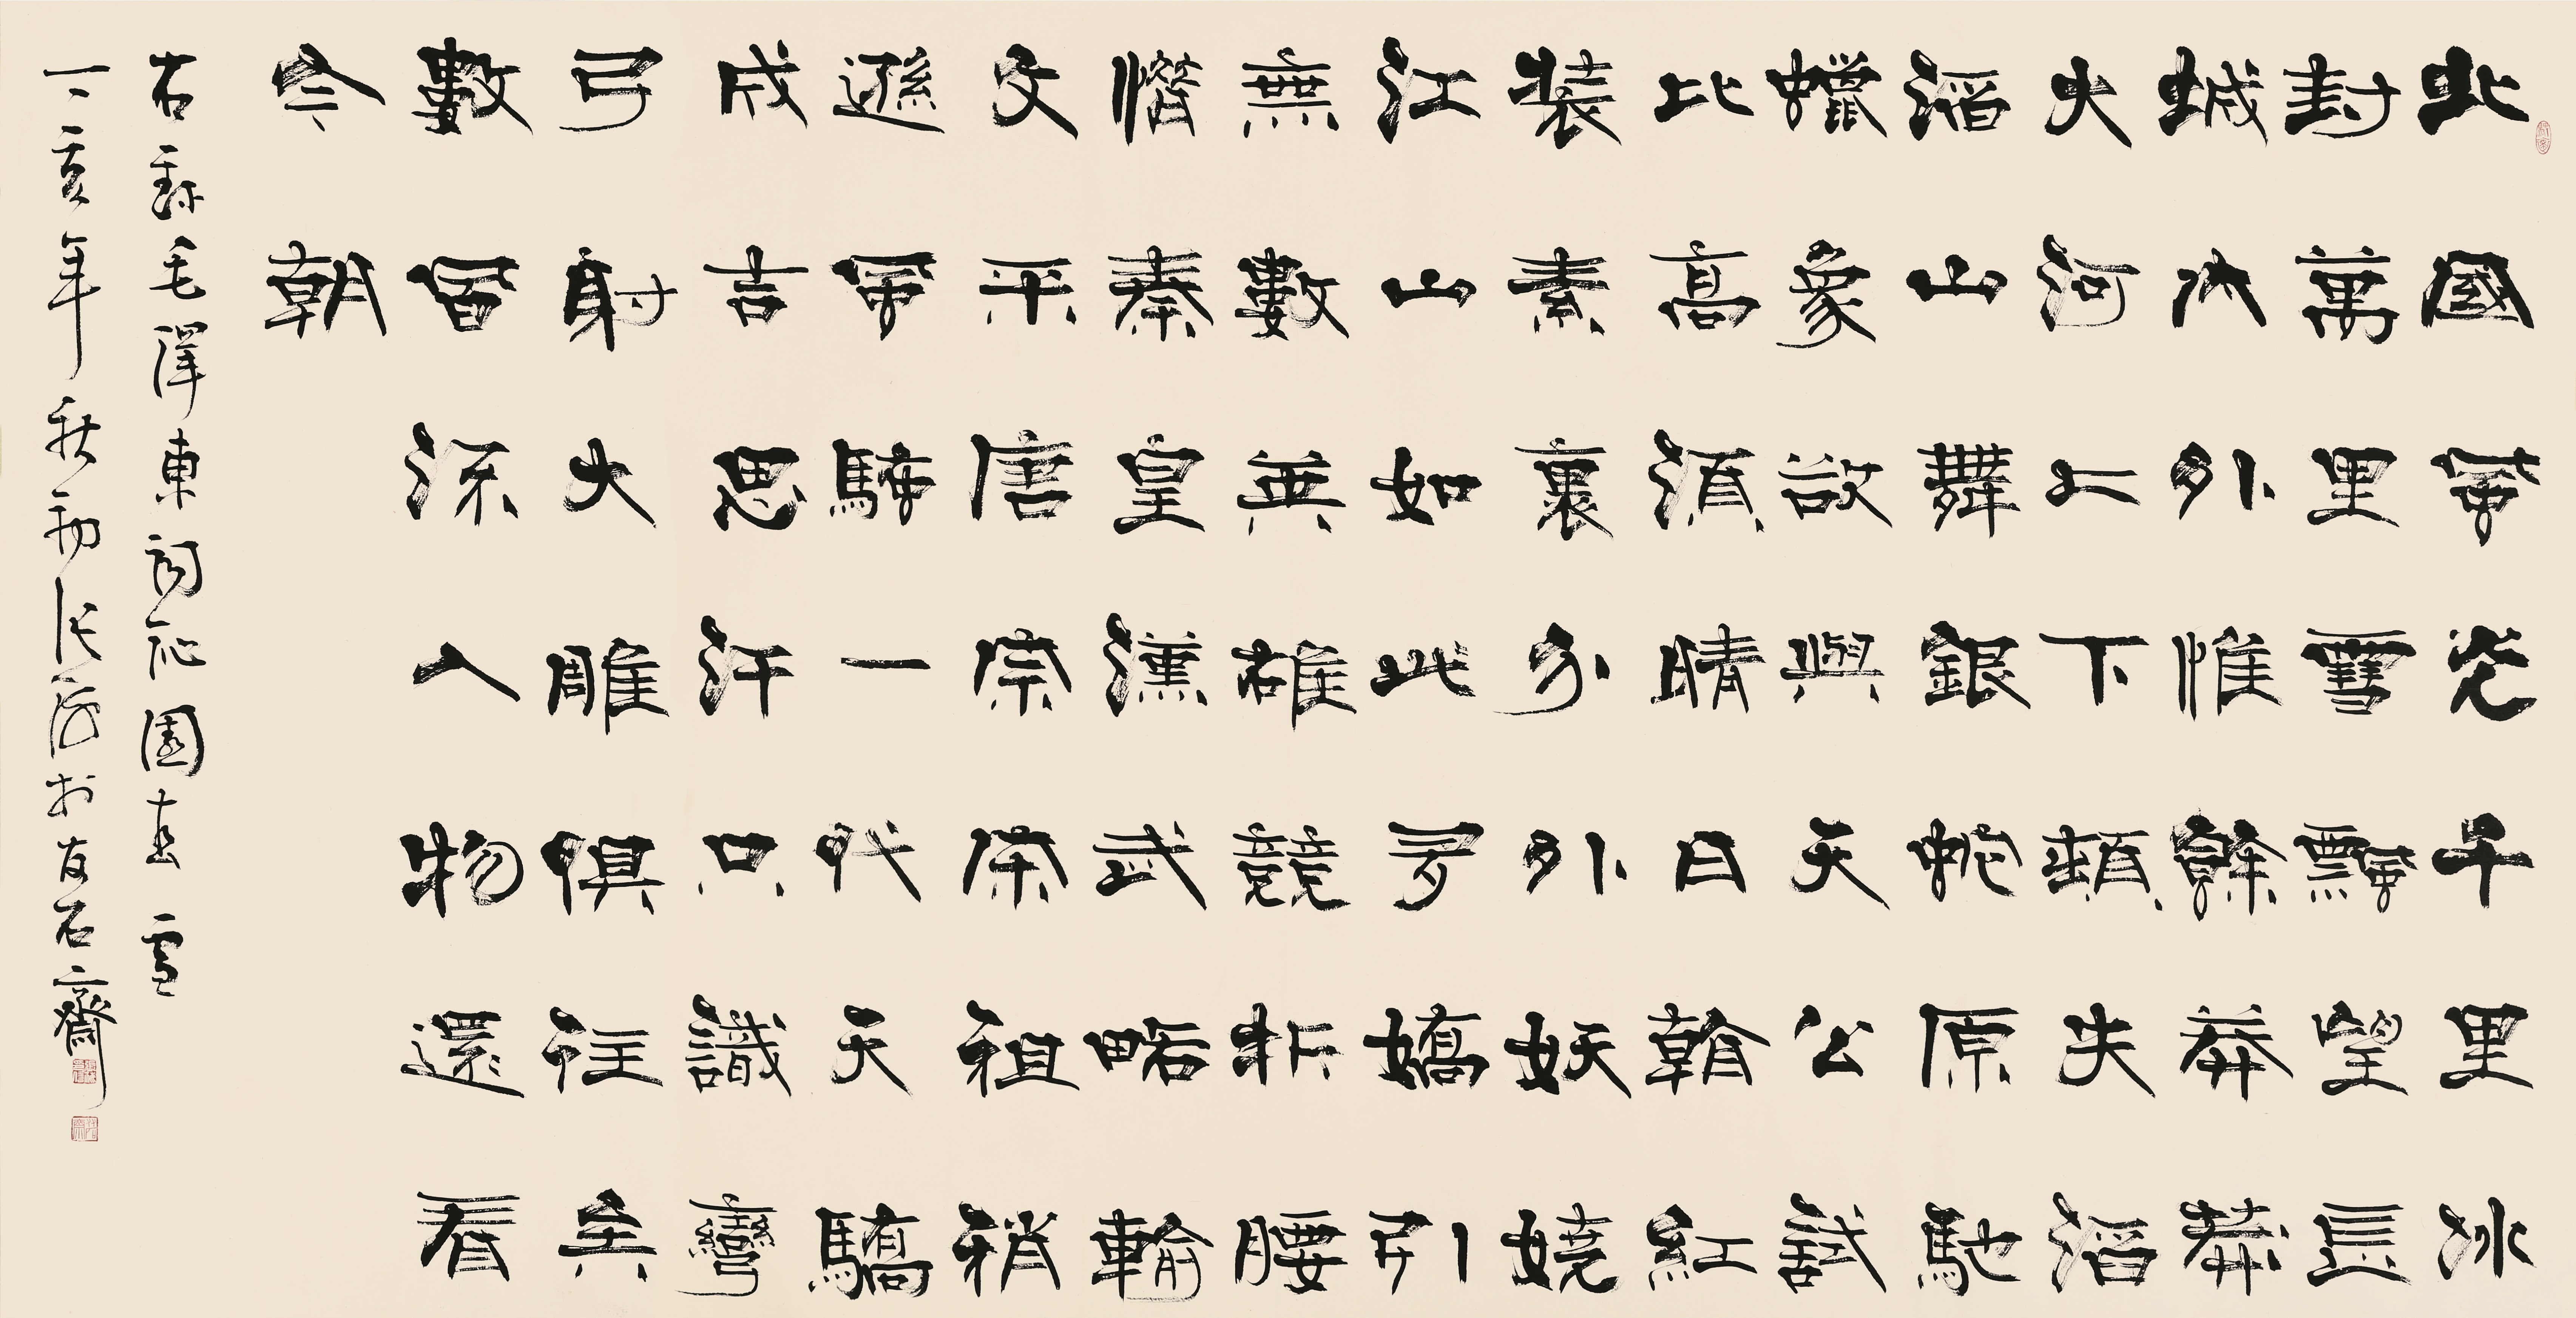 北國風光千里冰
封萬里雪飄望長
城内外惟餘莽莽
大河上下頓失滔
滔山舞銀蛇原馳
蠟象欲與天公試
比高須晴日看紅
裝素裹分外妖嬈
江山如此多嬌引
無數英雄競折腰
惜秦皇漢武略輸
文采唐宗宋祖稍
遜風騷一代天驕
成吉思汗只識彎
弓射大雕俱往矣
數風流人物還看
今朝
右録毛澤東詞沁園春 雪
丁亥年秋初張於友石齋